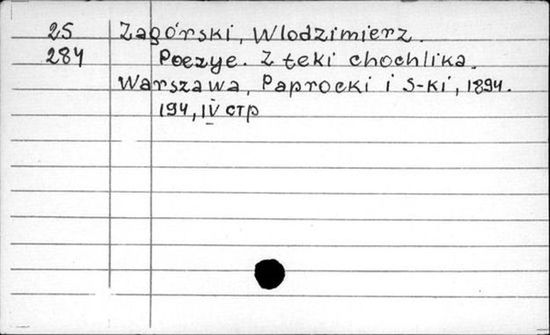 25 Zagórski, Wlodzimierz.
284 Poezye. Z teki chochlika.
Warszawa, Paprocki i S-ki, 1894.
194, IV стр